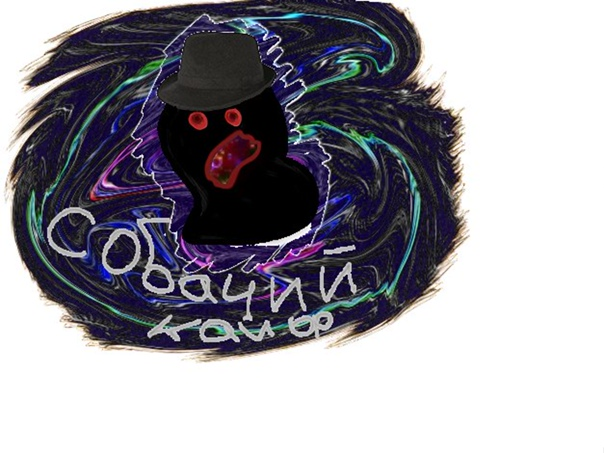 Собачий
каиф